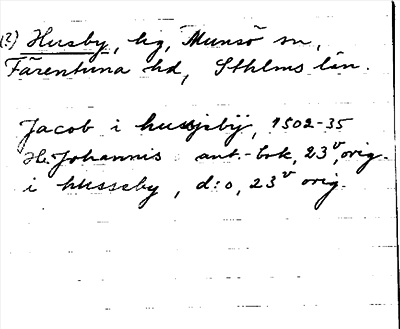 (?) Husby, hg, Munsö sn,
Färentuna hd, Sthlms län.
Jacob i husjsbÿ, 1502-35
H. Johannis ant.-bok, 23v, orig.
i husseby, d:o, 23v orig.